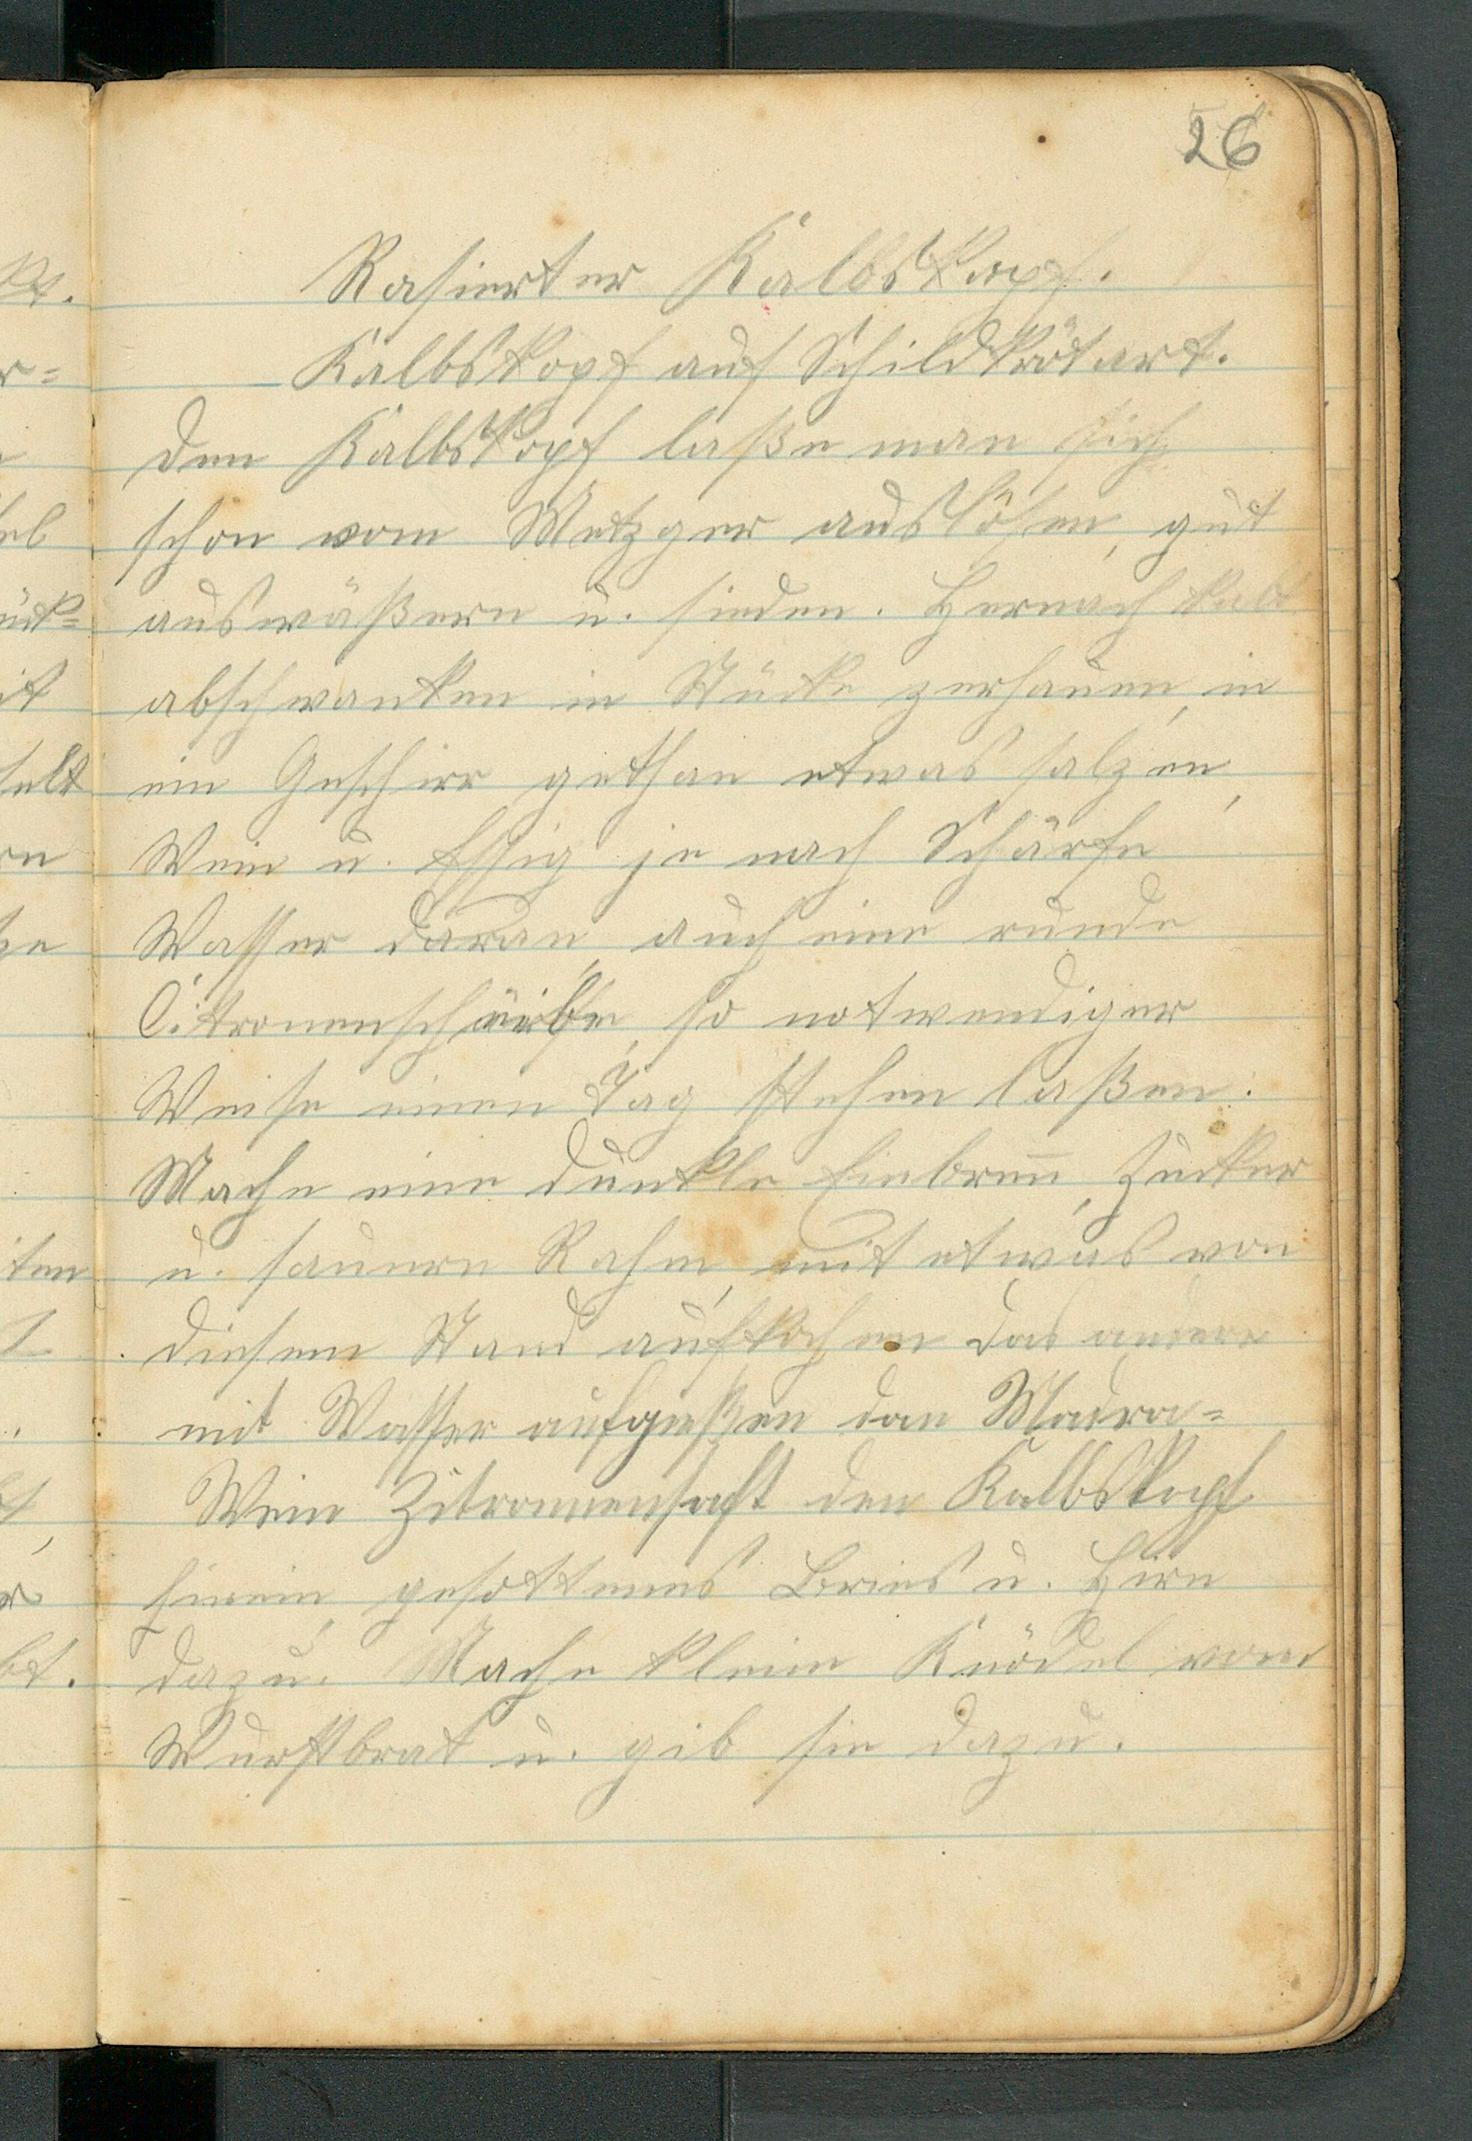 26
Rasierter Kalbskopf.
Kalbskopf auf Schildkrötart.
Den Kalbskopf laße man sich
schon vom Metzger auslösen, gut
auswäßern u. sieden. Hernach kalt
abschwanken in Stücke zerhauen, in
ein Geschirr gethan etwas salzen,
Wein u. Essig je nach Schärfe
Wasser daran, auch eine runde
Citronenscheibe, so notwendiger
Weise einen Tag stehen laßen.
Mache eine dunkle Einbrenn, Zucker
u. sauern Rahm, mit etwas von
diesem Stand aufkochen das andere
mit Wasser aufgießen dan Madra-
Wein Zitronnensaft den Kalbskopf
hinein, gesottenes Bries u. Hirn
dazu. Mache kleine Knödel vom
Wurstbrat u. gib sie dazu.